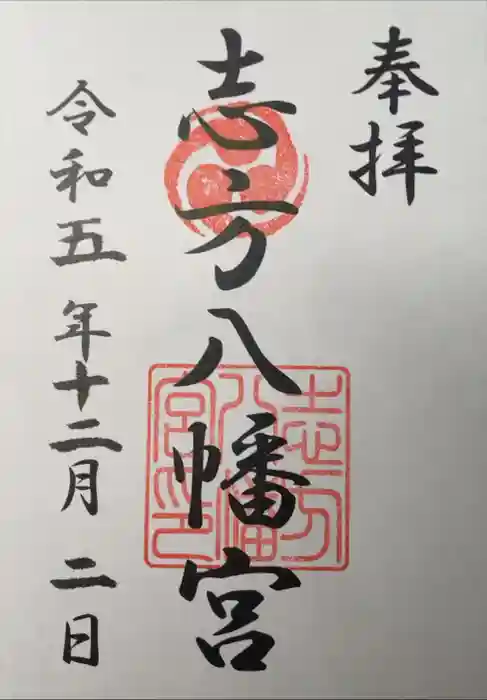 奉拝
志方八幡宮
志方八幡宮印
令和五年十二月二日